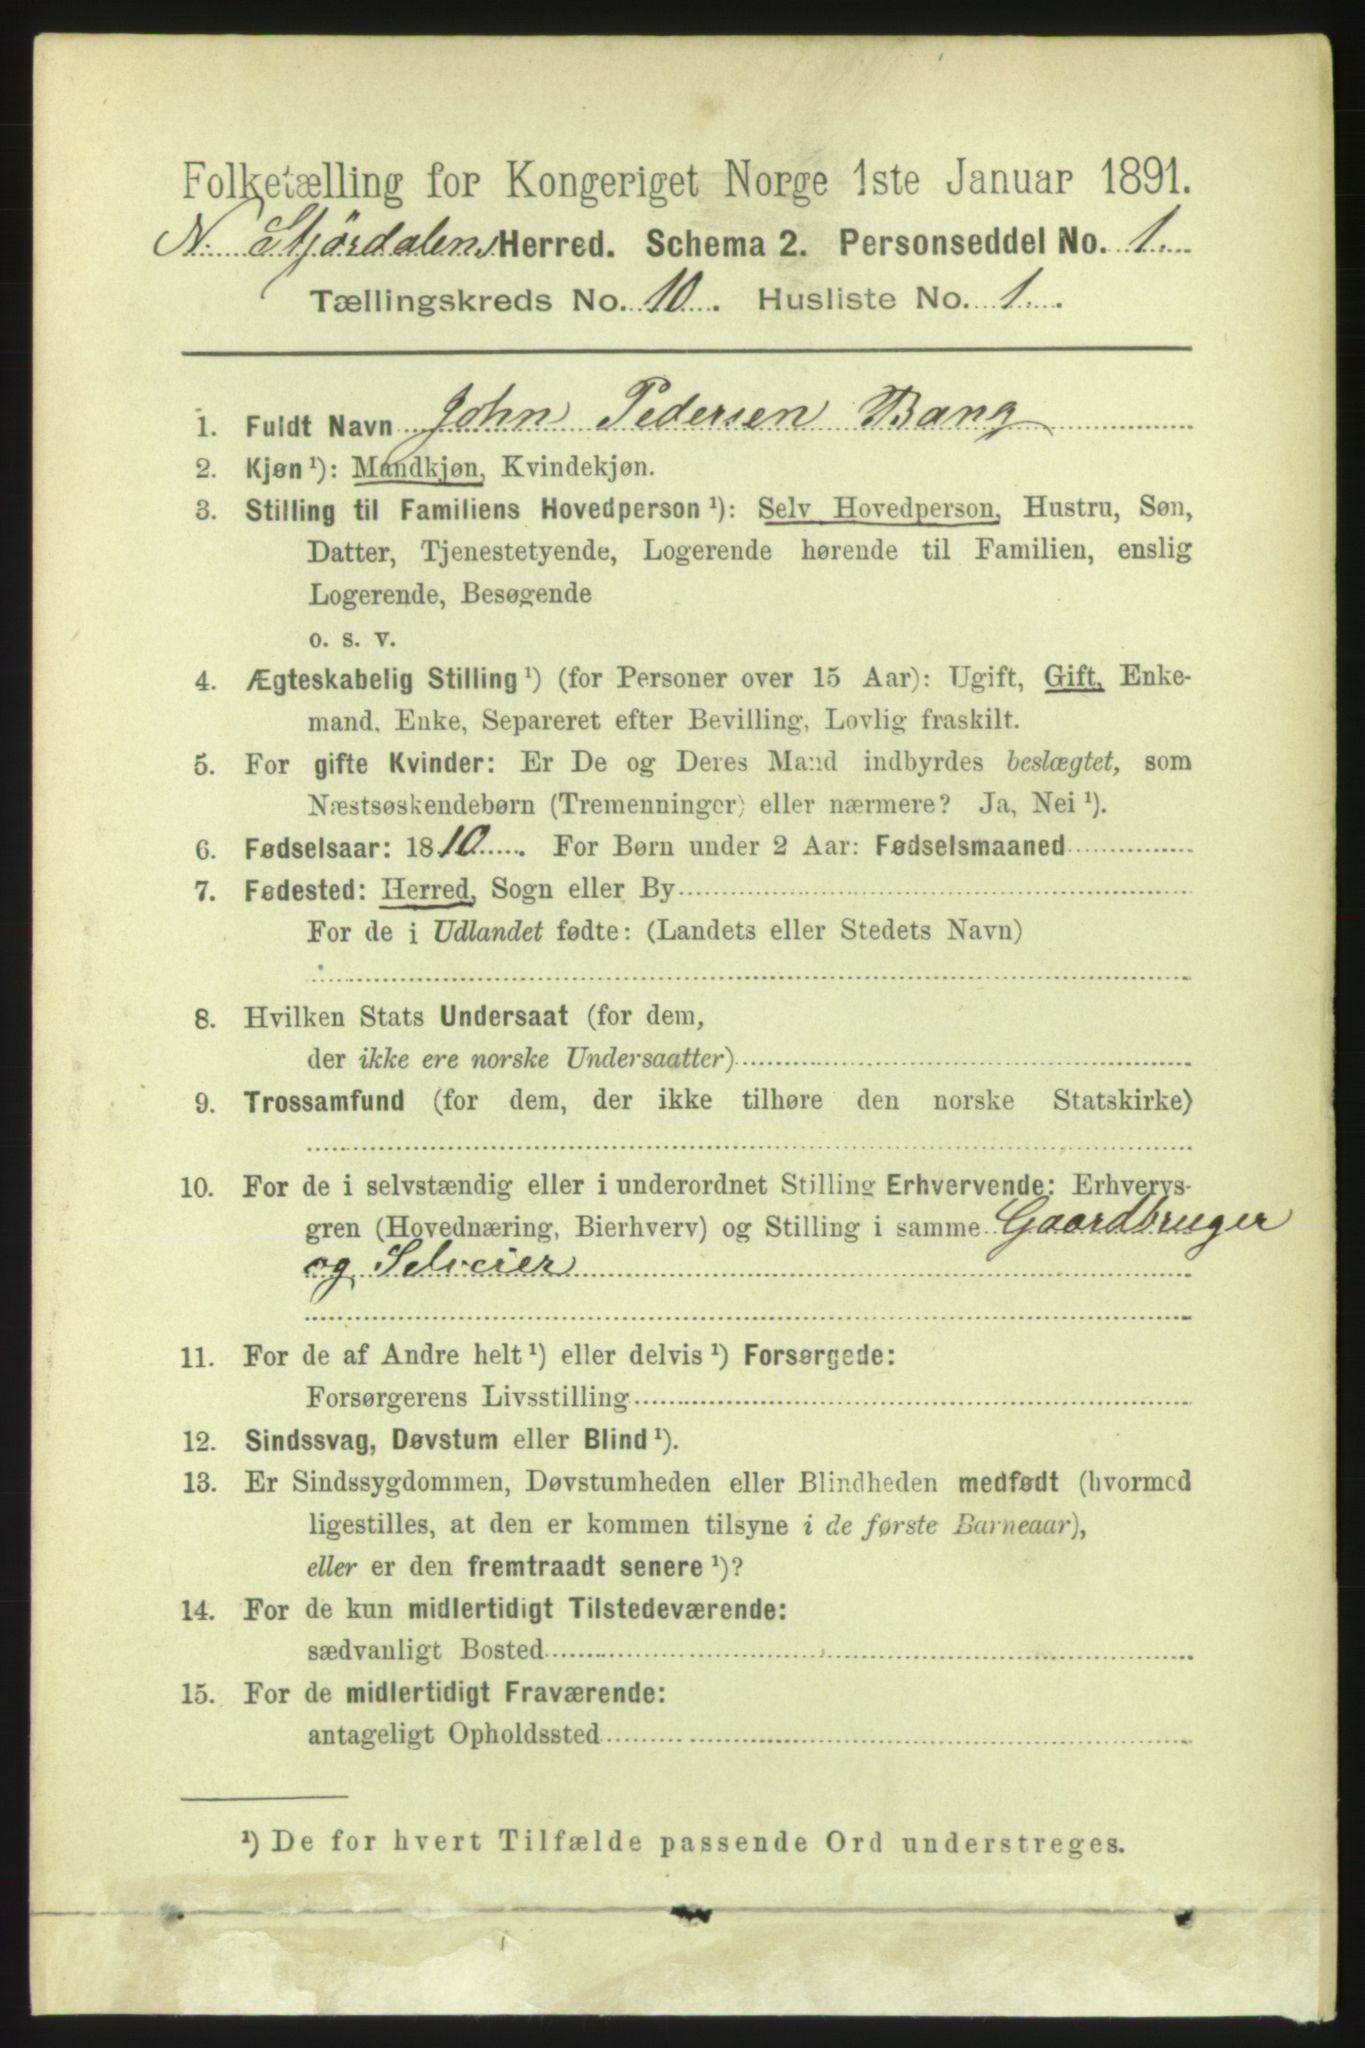 Folketælling for Kongeriget Norge 1ste Januar 1891.
N. Stjördalens Herred. Schema 2. Personseddel No. 1.
Tællingskreds No. 10. Husliste No. 1.
1. Fuldt Navn John Pedersen Bang
2. Kjøn ¹): Mandkjøn, Kvindekjøn.
3. Stilling til Familiens Hovedperson ¹): Selv Hovedperson, Hustru, Søn,
Datter, Tjenestetyende, Logerende hørende til Familien, enslig
Logerende, Besøgende
o. s. v.
4. Ægteskabelig Stilling ¹) (for Personer over 15 Aar): Ugift, Gift, Enke-
mand, Enke, Separeret efter Bevilling, Lovlig fraskilt.
5. For gifte Kvinder: Er De og Deres Mand indbyrdes beslægtet, som
Næstsøskendebørn (Tremenninger) eller nærmere? Ja, Nei ¹).
6. Fødselsaar: 1810. For Børn under 2 Aar: Fødselsmaaned
7. Fødested: Herred, Sogn eller By
For de i Udlandet fødte: (Landets eller Stedets Navn)
8. Hvilken Stats Undersaat (for dem,
der ikke ere norske Undersaatter)
9. Trossamfund (for dem, der ikke tilhøre den norske Statskirke)
10. For de i selvstændig eller i underordnet Stilling Erhvervende: Erhvervs-
gren (Hovednæring, Bierhverv) og Stilling i samme Gaardbruger
og Selveier
11. For de af Andre helt ¹) eller delvis ¹) Forsørgede:
Forsørgerens Livsstilling
12. Sindssvag, Døvstum eller Blind ¹).
13. Er Sindssygdommen, Døvstumheden eller Blindheden medfødt (hvormed
ligestilles, at den er kommen tilsyne i de første Barneaar),
eller er den fremtraadt senere ¹)?
14. For de kun midlertidigt Tilstedeværende:
sædvanligt Bosted
15. For de midlertidigt Fraværende:
antageligt Opholdssted
¹) De for hvert Tilfælde passende Ord understreges.